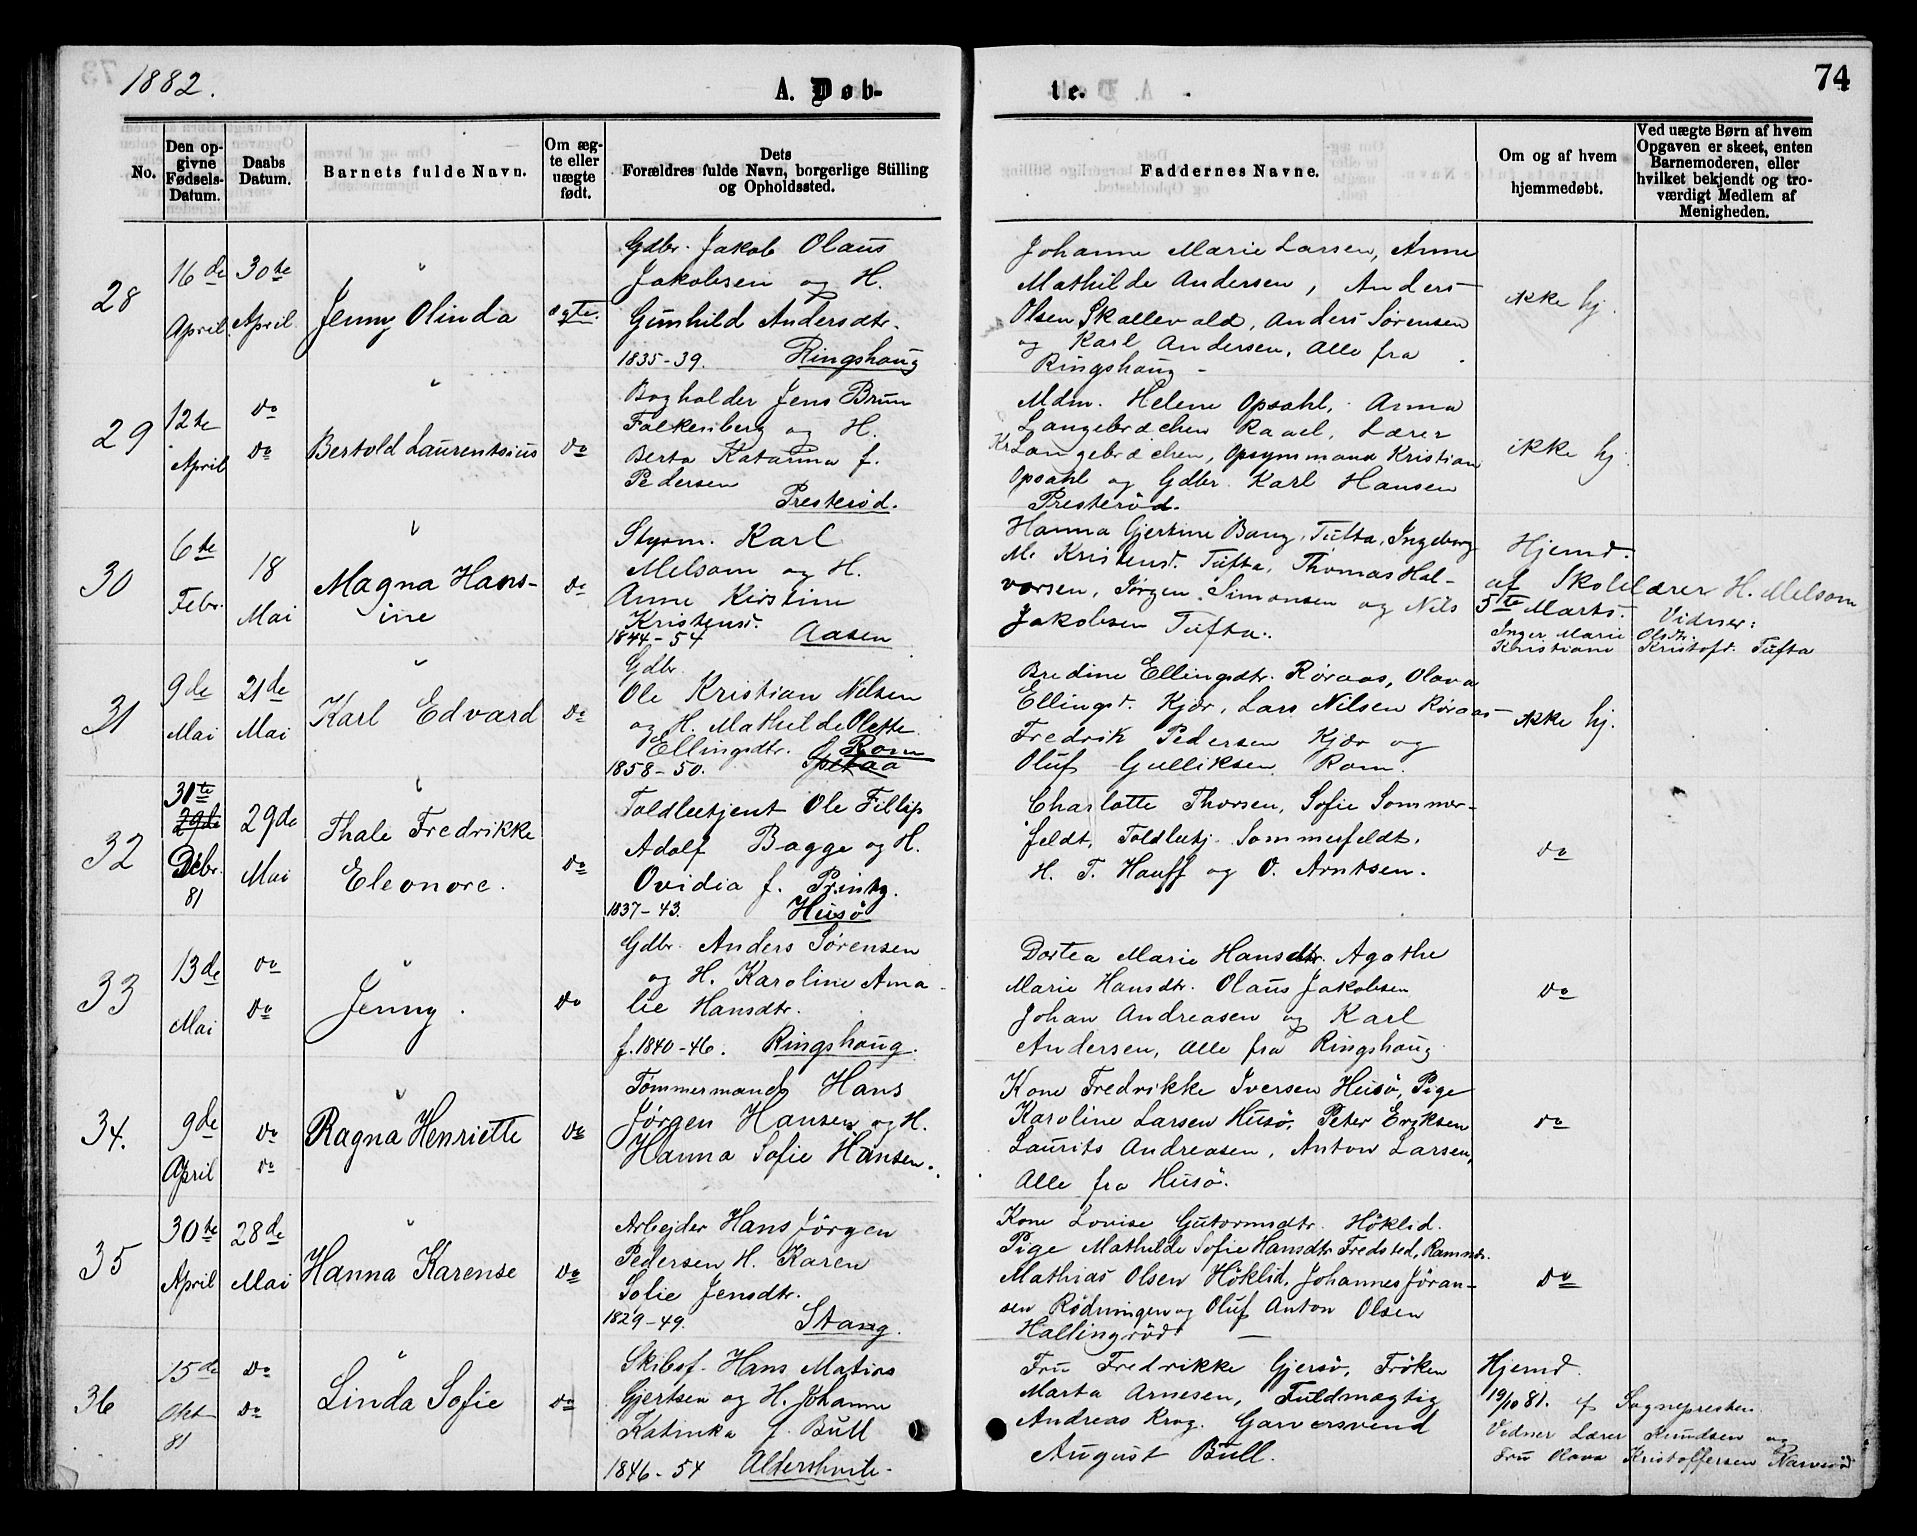 1882.
A. Døb-
te.
74
No.
Den op-
givne
Fødsels-
Datum.
Daabs
Datum.
Barnets fulde Navn.
Om æg-
te eller
uægte
født.
Dets
Forældres fulde Navn, borgerlige Stilling
og Opholdssted.
Faddernes Navne.
Om og af hvem
hjemmedøbt.
Ved uægte Børn af hvem
Opgaven er skeet, enten
Barnemoderen, eller
hvilket bekjendt og tro-
værdigt Medlem af
Menigheden.
28
16de
April
30te
April
Jenny Olinda
ægte.
Gdbr. Jakob Olaus
Jakobsen og H.
Gunhild Andersdtr.
1835-39. Ringshaug
Johanne Marie Larsen, Anne
Mathilde Andersen, Anders
Olsen Skallevald, Anders Sørensen
og Karl Andersen, Alle fra
Ringshaug -
ikke hj.
29
12te
April
do
do
Bertold Laurentsius
do
Bogholder Jens Brun
Falkenberg og H.
Berta Katarina f.
Pedersen
Presterød.
Mdm. Helene Opsahl, Anna
Langebrächen Raael, Lærer
Kr Langebrächen, Opsymmand Kristian
Opsahl og Gdbr. Karl Hansen
Presterød.
ikke hj.
30
6te
Febr.
18
Mai
Magna Hans-
ine
do
Styrm. Karl
Melsom og H.
Anne Kirstine
Kristensd.
1844-54 Aasen
Hanna Gjertine Bang, Tufta, Ingeborg
M. Kristensd. Tufta, Thomas Hal-
vorsen, Jørgen Simonsen og Nils
Jakobsen Tufta.
Hjemd.
af Skolelærer H. Melsom
5te Marts. Vidner:
Inger Marie Olsdtr.
Kristiane Kristofd. Tufta
31
9de
Mai
21de
Mai
Karl Edvard
do
Gdbr.
Ole Kristian Nilsen
og H. Mathilde Olette
Ellingsdtr. Rom
1858-50.
Bredine Ellingsdtr. Røraas, Olava
Ellingsd. Kjær, Lars Nilsen Røraas
Fredrik Pedersen Kjær og
Oluf Gulliksen Rom.
ikke hj.
32
31te
29de
Debr.
81
29de
Mai
Thale Fredrikke
Eleonore.
do
Toldbetjent Ole Fillip
Adolf Bagge og H.
Ovidia f. Printz.
1837-43. Husø
Charlotte Thorsen, Sofie Sommer-
feldt, Toldbetj. Sommerfeldt,
H. T. Hauff og O. Arntsen.
do
33
13de
Mai
do
do
Jenny.
do
Gdbr. Anders Sørensen
og H. Karoline Ama-
lie Hansdtr.
f. 1840-46. Ringshaug.
Dortea Marie Hansdtr. Agathe
Marie Hansdtr. Olaus Jakobsen
Johan Andreasen og Karl
Andersen, Alle fra Ringshaug.
do
34.
9de
April
do
do
Ragna Henriette
do
Tømmermand Hans
Jørgen Hansen og H.
Hanna Sofie Hansen.
Kone Fredrikke Iversen Husø, Pige
Karoline Larsen Husø, Peter Eriksen
Laurits Andreasen, Anton Larsen,
Alle fra Husø.
do
35
30te
April
28de
Mai
Hanna Karense
do
Arbejder Hans Jörgen
Pedersen H. Karen
Sofie Jensdtr.
1829-49. Stang.
Kone Lovise Gutormsdtr. Höklid.
Pige Mathilde Sofie Hansdtr Fredsted, Ramnæs.
Mathias Olsen Höklid, Johannes Jöran-
sen Rödningen og Oluf Anton Olsen
Hallingröd
do
36
15de
Okt
81
do
do
Linda Sofie
do
Skibsf. Hans Matias
Gjertsen og H. Johanne
Katinka f. Bull
1846-54 Aldershvile.
Fru Fredrikke Gjersø, Frøken
Marta Arnesen, Fuldmægtig
Andreas Krog. Garversvend
August Bull.
Hjemd.
19/10 81. af Sognepresten.
Vidner Lærer Knudsen og
Fru Olava Kristoffersen Narverød